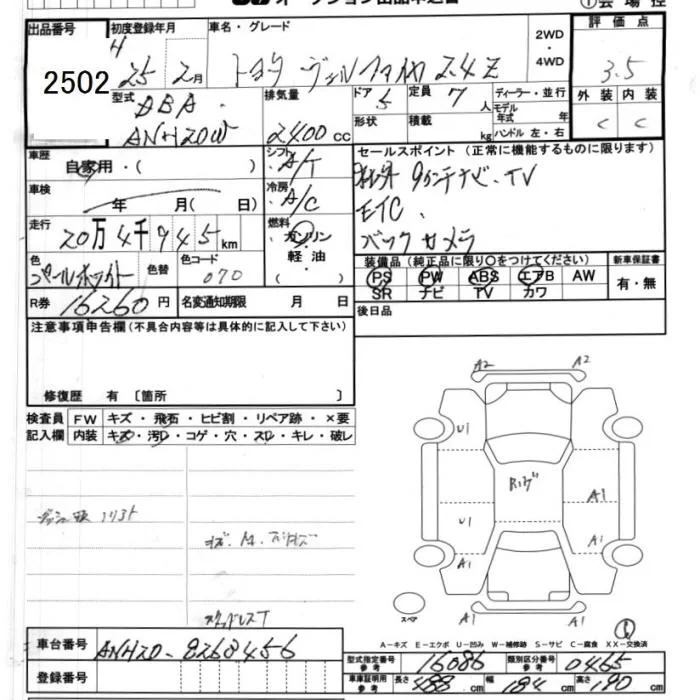 オークション出品申込書
出品番号 初度登録年月 車名・グレード 2WD・4WD 評価点
2502 H 25 2月 トヨタ ヴェルファイヤ 2.4Z 3.5
型式 DBA・ANH20W 排気量 2400cc ドア 5 定員 7人 ディーラー・並行 外装 内装
形状 積載 kg モデル年式 年 ハンドル 左・右 C C
車歴 自家用・( ) シフト A/T セールスポイント(正常に機能するものに限ります)
車検 年 月( 日) 冷房 A/C 9インチナビ・TV
ETC、
バックカメラ
走行 20万4千945km 燃料 ガソリン・軽油 ( )
色 パールホワイト 色替 色コード 070
装備品(純正品に限り〇をつけてください) 新車保証書
PS PW ABS エアB AW 有・無
SR ナビ TV カワ
R券 16260円 名変通知期限 月 日 後日品
注意事項申告欄(不具合内容等は具体的に記入して下さい)
修復歴 有 〔箇所 〕
検査員記入欄 FW キズ・飛石・ヒビ割・リペア跡・×要
内装 キズ・汚レ・コゲ・穴・スレ・キレ・破レ
A2 A2
U1
A1
U1 A1
A1 A1
A1
スペア
スタッドレスT
A-キズ E-エクボ U-凹み W-補修跡 S-サビ C-腐食 XX-交換済
車台番号 ANH20-8268456
登録番号
型式指定番号 参考 16086 類別区分番号 参考 0465
車庫証明用 参考 長さ 488cm 幅 184cm 高さ 190cm